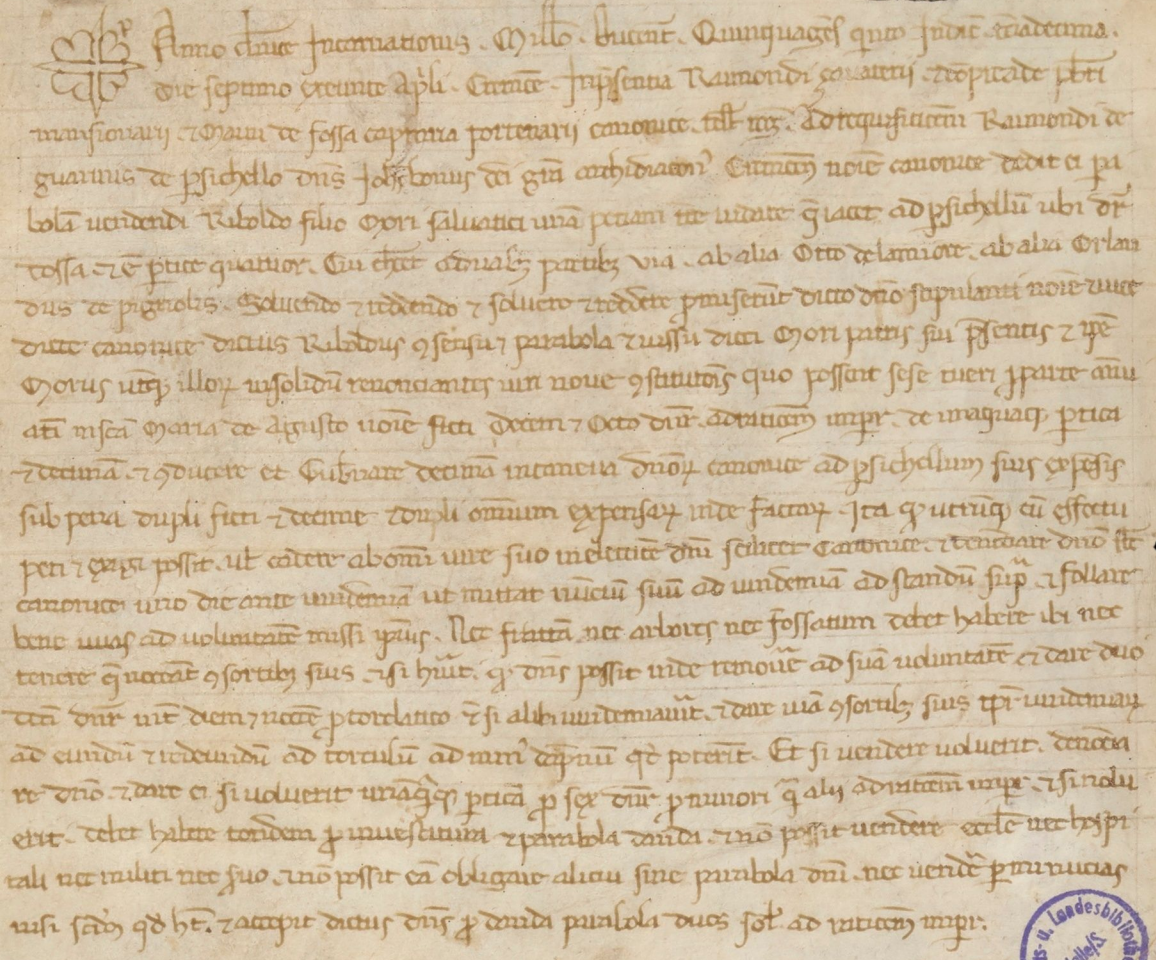 Anno dnice Incarnationis . Millo . ducent . Quinquages quito Indic . tciadecima .
die septimo exeunte Apli . Cremone . Inpsentia Raimondi . pbri
mansionarii . de fossa capraria portenarii canonice . test rog . Ad requisitionem Raimondi de
guarinis de psichello dns Johsbonus dei gra archidiacon Cremon noie canonice dedit ei pa
bola uendendi Riboldo filio Mori saluatici una peciam tre uidate q iacet ad psichellu ubi dr
fossa . & e ptice quatuor . Cui cheret a duabz partibz uia . ab alia Otto delamiore . ab alia Orlan
dus de pignolis . Soluendo & reddendo & soluere & reddere pmiserunt dicto dno stipulanti noie & uice
dicte canonice dictus Riboldus 9sensu & parabola & iussu dicti Mori patris sui psentis & ipe
Morus utq illoz insolidu renonciantes iuri noue 9stitutois quo possent sese tueri pparte annu
ati insca Maria de Agusto noie ficti Decem & Octo dinr . adraticem impr . de unaquaq ptica
& decima . & 9ducere et Gubnare decima incaneua dnoz canonice ad psichellum suis expesis
sub pena dupli ficti & decime & dupli omnium expensaz inde factaz . Ita qp utruq cu effectu
peti & exigi possit . ul cadere ab omi iure suo inelectione dni scilicet Canonice . & denonciare dno
canonice uno die ante uindemia ut mittat nunciu suu ad uindemia ad standu supra . & follare
bene uuas ad uoluntate missi ipsius . Nec nec arbores nec fossatum debet habere ibi nec
tenere q noceant 9sortibz suis . & si huit . qp dns possit inde remoue ad sua uoluntate & dare duo
deci dinr int diem & nocte p torclatico & si alibi uindemiauit . & dare uia 9sortibz suis tpr uindemiaz
ad eundu & redeundu ad torculu ad min dapnu qd poterit . Et si uendere uoluerit . denoncia
re dno . & dare ei si uoluerit unaqq ptica p sex dinr pminori q alii adraticem impr . & si nolu
erit . debet habere totidem p inuestitura & parabola danda . & no possit uendere ecclie nec hospi
tali nec militi nec suo . & no possit ea obligare alicui sine parabola dni . nec uende p minucias
nisi scdm qd ht . & accepit dictus dns p danda parabola duos sol ad raticem impr .